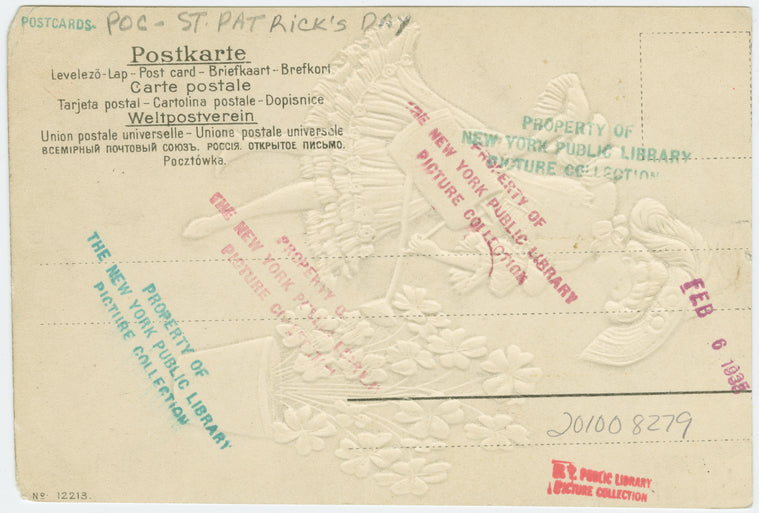 POSTCARDS- POC - ST. PATRICK'S DAY
Postkarte
Levelező-Lap - Post card - Briefkaart - Brefkort
Carte postale
Tarjeta postal - Cartolina postale - Dopisnice
Weltpostverein
Union postale universelle - Unione postale universale
ВСЕМІРНЫЙ ПОЧТОВЫЙ СОЮЗЪ. РОССІЯ. ОТКРЫТОЕ ПИСЬМО.
Pocztówka.
PROPERTY OF
NEW YORK PUBLIC LIBRARY
PICTURE COLLECTION
PROPERTY OF
THE NEW YORK PUBLIC LIBRARY
PICTURE COLLECTION
PROPERTY OF
THE NEW YORK PUBLIC LIBRARY
PICTURE COLLECTION
PROPERTY OF
THE NEW YORK PUBLIC LIBRARY
PICTURE COLLECTION
FEB 6 1935
201008279
PUBLIC LIBRARY
PICTURE COLLECTION
No 12213.